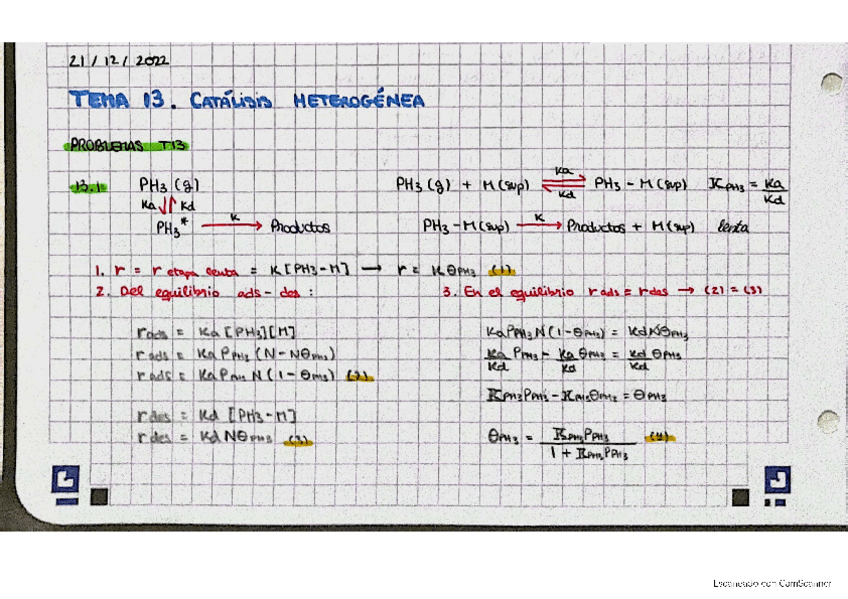 21/12/2022
TEMA 13. CATÁLISIS HETEROGÉNEA
PROBLEMAS T13
13.1 PH3 (g)
Ka Kd
PH3* K Productos
PH3(g) + M(sup) Ka Kd PH3-M(sup) KPH3 = Ka/Kd
PH3-M(sup) K Productos + M(sup) lenta
1. r = r etapa lenta = K[PH3-M] → r = KθPH3 (1)
2. Del equilibrio ads-des:
rads = Ka[PH3][M]
rads = KaPPH3(N-NθPH3)
rads = KaPPH3N(1-θPH3) (2)
rdes = Kd [PH3-M]
rdes = KdNθPH3 (3)
3. En el equilibrio rads = rdes → (2) = (3)
KaPPH3N(1-θPH3) = KdNθPH3
Ka/Kd PPH3 - Ka/Kd θPH3 = Kd/Kd θPH3
KPH3PPH3 - KPH3θPH3 = θPH3
θPH3 = KPH3PPH3 / 1 + KPH3PPH3 (4)
Escaneado con CamScanner